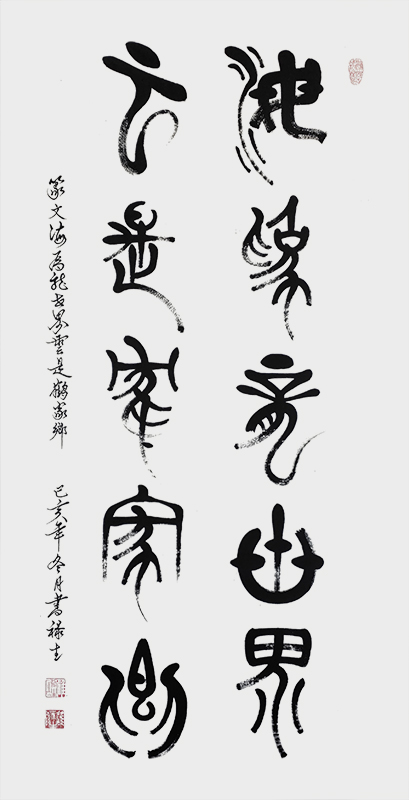 海為龍世界
云是鶴家鄉
篆文海為龍世界雲是鶴家鄉
己亥年冬月書祿生